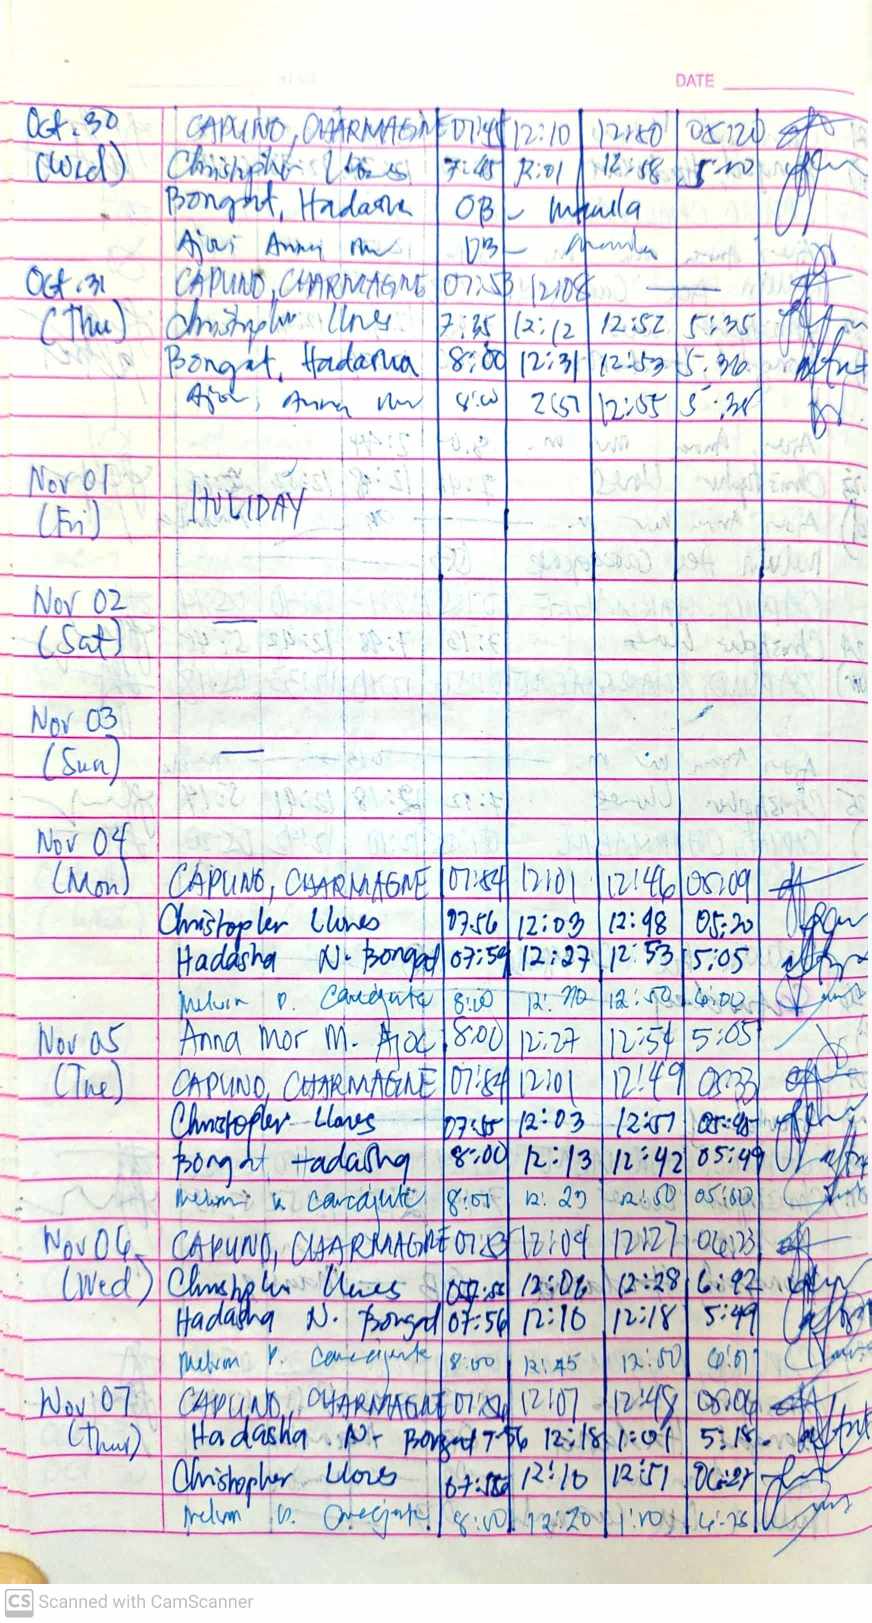 DATE
Oct. 30 CAPUNO, CHARMAGNE 07:45 12:10 12:50 05:20
(Wed) Christopher Llones 7:45 12:01 12:58 5:40
Bongat, Hadasha OB - Manila
Ajoc, Anna Mor OB - Manila
Oct. 31 CAPUNO, CHARMAGNE 07:53 12:08 —
(Thu) Christopher Llones 7:35 12:12 12:52 5:35
Bongat, Hadasha 8:00 12:31 12:53 5:36
Ajoc, Anna Mor 8:00 12:55
Nov 01 HOLIDAY
(Fri)
Nov 02 —
(Sat)
Nov 03
(Sun) —
Nov 04
(Mon) CAPUNO, CHARMAGNE 07:54 12:01 12:46 05:09
Christopher Llones 07:56 12:03 12:48 05:20
Hadasha N. Bongat 07:59 12:27 12:53 5:05
Melvin 8:00 12:50
Nov 05 Anna Mor M. Ajoc 8:00 12:27 12:54 5:05
(Tue) CAPUNO, CHARMAGNE 07:54 12:01 12:49 05:33
Christopher Llones 07:55 12:03 12:57 05:45
Bongat, Hadasha 8:00 12:13 12:42 05:49
Melvin 12:50
Nov 06 CAPUNO, CHARMAGNE 07:53 12:04 12:27 06:23
(Wed) Christopher Llones 12:06 12:28 6:42
Hadasha N. Bongat 07:56 12:10 12:18 5:49
Melvin 8:00 12:45 12:50
Nov 07 CAPUNO, CHARMAGNE 12:07 12:48 05:06
(Thu) Hadasha N. Bongat 7:56 12:18 1:01 5:18
Christopher Llones 12:10 12:51 06:27
Melvin 8:00 12:20 1:00
CS Scanned with CamScanner